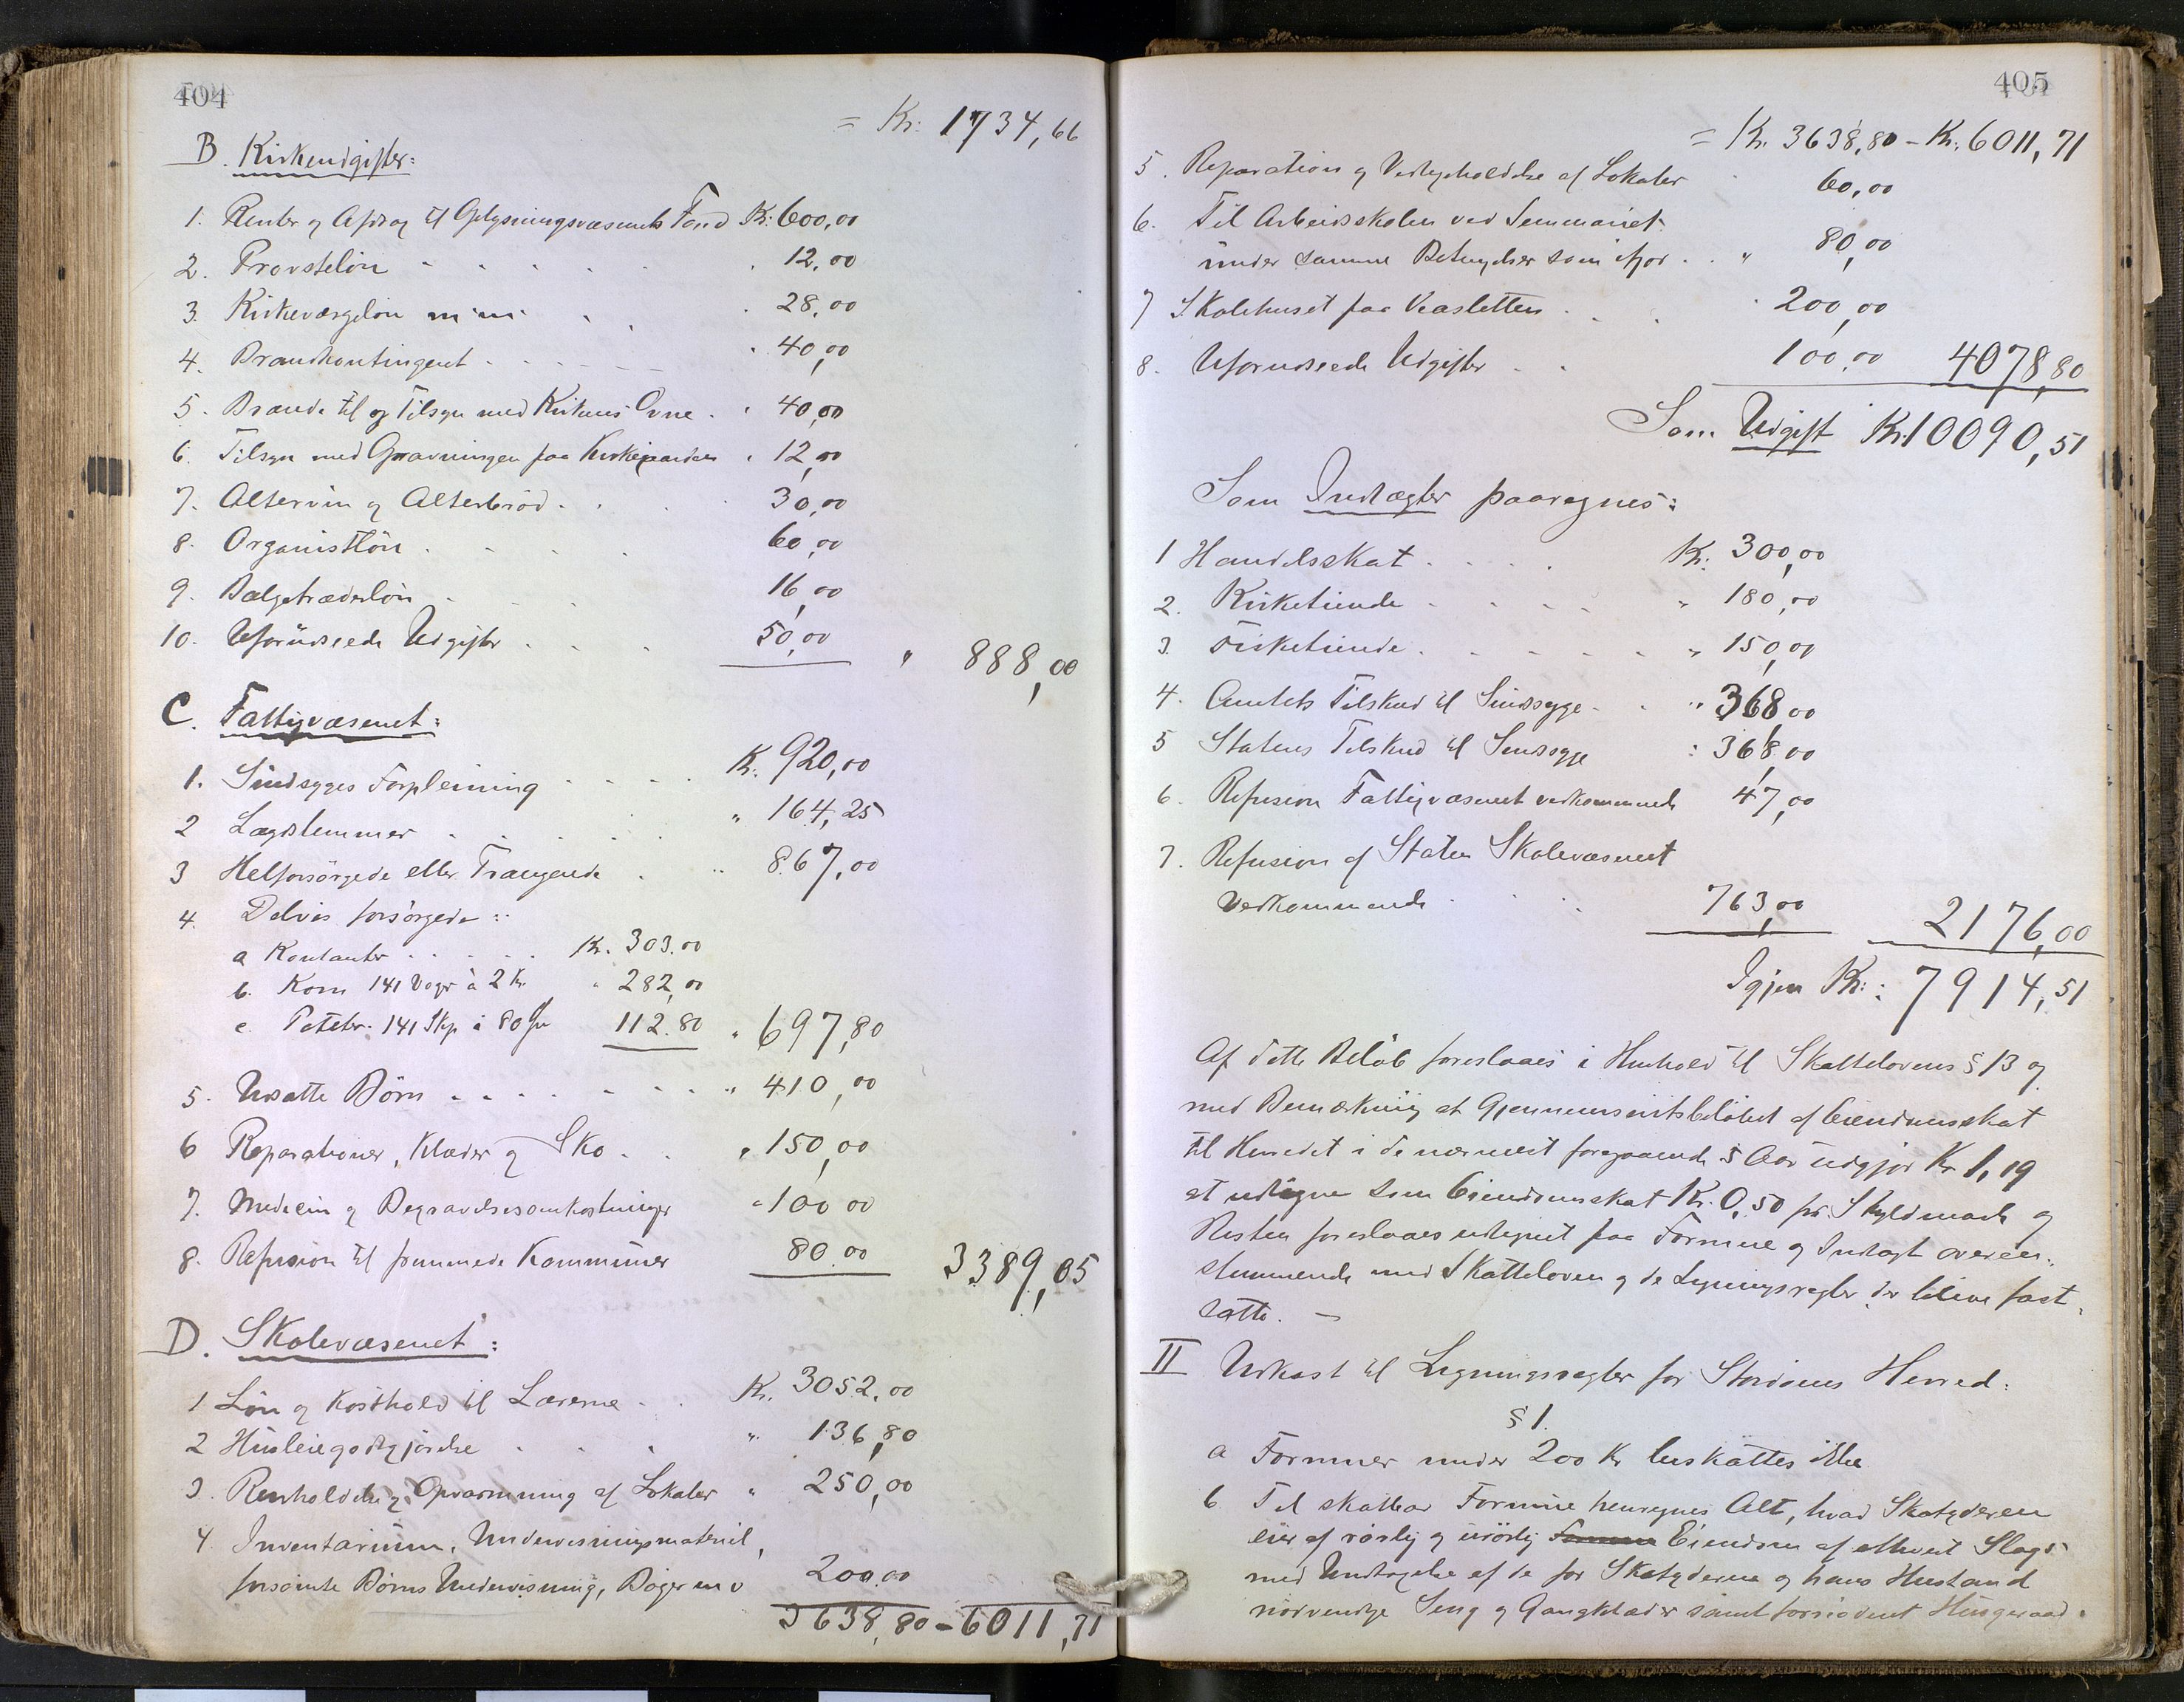 404
= Kr. 1734,66
B. Kirkeudgifter:
1. Renter og Afdrag til Oplysningsvæsenets Fond Kr. 600,00
2. Provsteløn - - - - - . 12,00
3. Kirkeværgeløn m. m. . . . 28,00
4. Brandkontingent - - - - - " 40,00
5. Brænde til og Tilsyn med Kirkens Ovne . " 40,00
6. Tilsyn med Gravningen paa Kirkegaarden " 12,00
7. Altervin og Alterbrød . . . . 30,00
8. Organistløn . - - . 60,00
9. Bælgetræderløn . . . 16,00
10. Uforudseede Udgifter . . . 50,00 " 888,00
C. Fattigvæsenet:
1. Sindsyges Forpleining - - - . Kr. 920,00
2 Lægdslemmer . . . . . " 164,25
3 Helforsørgede eller Trængende . " 867,00
4. Delvis forsørgede :
a Kontanter . . . . . Kr. 303.00
b. Korn 141 Voger à 2 Kr. " 282,00
c. Poteter 141 Skp. à 80 Øre 112.80 " 697,80
5. Udsatte Børn - - . . - - - - " 410,00
6 Reparationer, Klæder og Sko . . " 150,00
7. Medecin og Begravelsesomkostninger " 100 00
8. Refusion til fremmede Kommuner 80.00 3389,05
D. Skolevæsenet:
1 Løn og Kosthold til Lærerne . . Kr. 3052.00
2 Husleiegodtgjørelse . . . " 136,80
3. Renholdelse og Opvarmning af Lokaler " 250,00
4. Inventarium, Undervisningsmateriel,
forsømte Børns Undervisning, Bøger m v 200.00
3638,80 - 6011,71
405
= Kr. 3638,80 - Kr. 6011,71
5. Reparation og Vedligeholdelse af Lokaler 60,00
6. Til Arbeidsskolen ved Seminariet
under samme Betingelser som ifjor . . " 80,00
7 Skolehuset paa Veasletten . . . 200,00
8. Uforudseede Udgifter . . 100.00 4078,80
Som Udgift Kr. 10090,51
Som Indtægter paaregnes:
1 Handelsskat . . . . Kr. 300,00
2. Kirketiende - - - - " 180,00
3. Fisketiende . - - - - " 150,00
4. Amtets Tilskud til Sindssyge - . " 368,00
5 Statens Tilskud til Sindssyge : 368,00
6. Refusion Fattigvæsenet vedkommende 47,00
7. Refusion af Staten Skolevæsenet
vedkommende . . . 763,00 2176,00
Igjen Kr.: 7914,51
Af dette Beløb foreslaaes i Henhold til Skattelovens § 13 og
med Bemærkning at Gjennemsnitsbeløbet af Eiendomsskat
til Herredet i de nærmest foregaaende 5 Aar udgjør Kr. 1,19
at udligne som Eiendomsskat Kr. 0,50 pr. Skyldmark og
Resten foreslaaes udlignet paa Formue og Indtægt overens-
stemmende med Skatteloven og de Ligningsregler der blive fast-
satte. —
II Udkast til Ligningsregler for Stordøens Herred.
§ 1.
a Formuer under 200 Kr beskattes ikke
b Til skatbar Formue henregnes Alt, hvad Skatyderen
eier af rørlig og urørlig Eiendom af ethvert Slags
med Undtagelse af de for Skatyderne og hans Husstand
nødvendige Seng og Gangklæder samt fornødent Husgeraad.